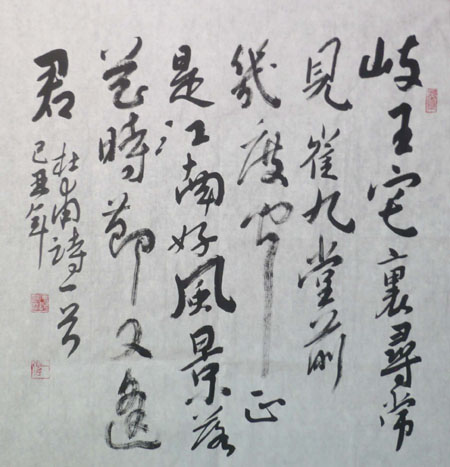 岐王宅裏尋常
見崔九堂前
幾度聞正
是江南好風景落
花時節又逢
君
杜甫詩一首
己丑年